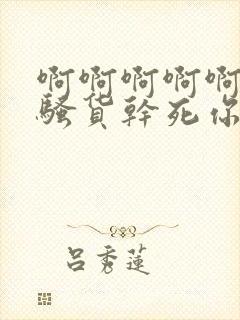 啊啊啊啊啊
骚货幹死你
吕秀莲